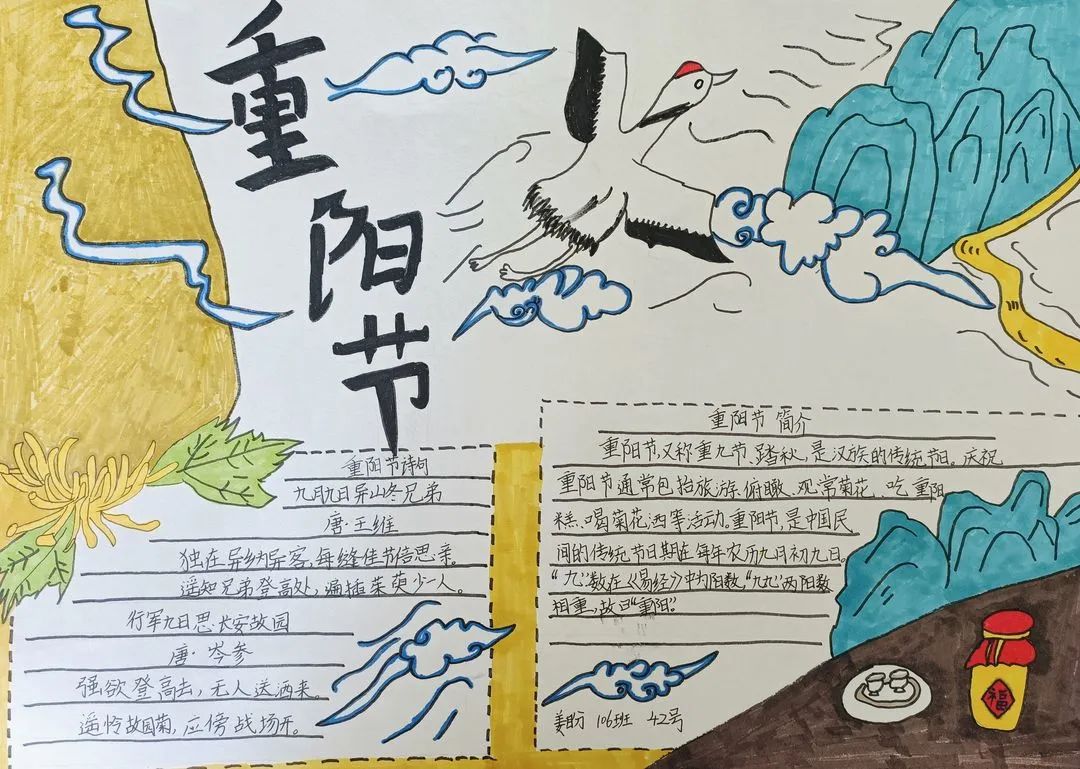 重阳节
重阳节诗句
九月九日异山冬兄弟
唐·王维
独在异纳异客,每缝佳节倍思亲。
遥知兄弟登高处,遍插茱萸少一人。
行军九日思长安故园
唐·岑参
强欲登高去,无人送酒来。
遥怜故园菊,应傍战场开。
重阳节 简介
重阳节,又称重九节、踏秋,是汉族的传统节日。庆祝
重阳节通常包括旅游、俯瞰、观常菊花、吃重阳
糕、喝菊花洒等活动。重阳节,是中国民
间的传统节日日期在每年农历九月初九日。
“九”数在《易经》中为阳数,“九九”两阳数
相重,故曰“重阳”。
姜盼 106班 42号
福